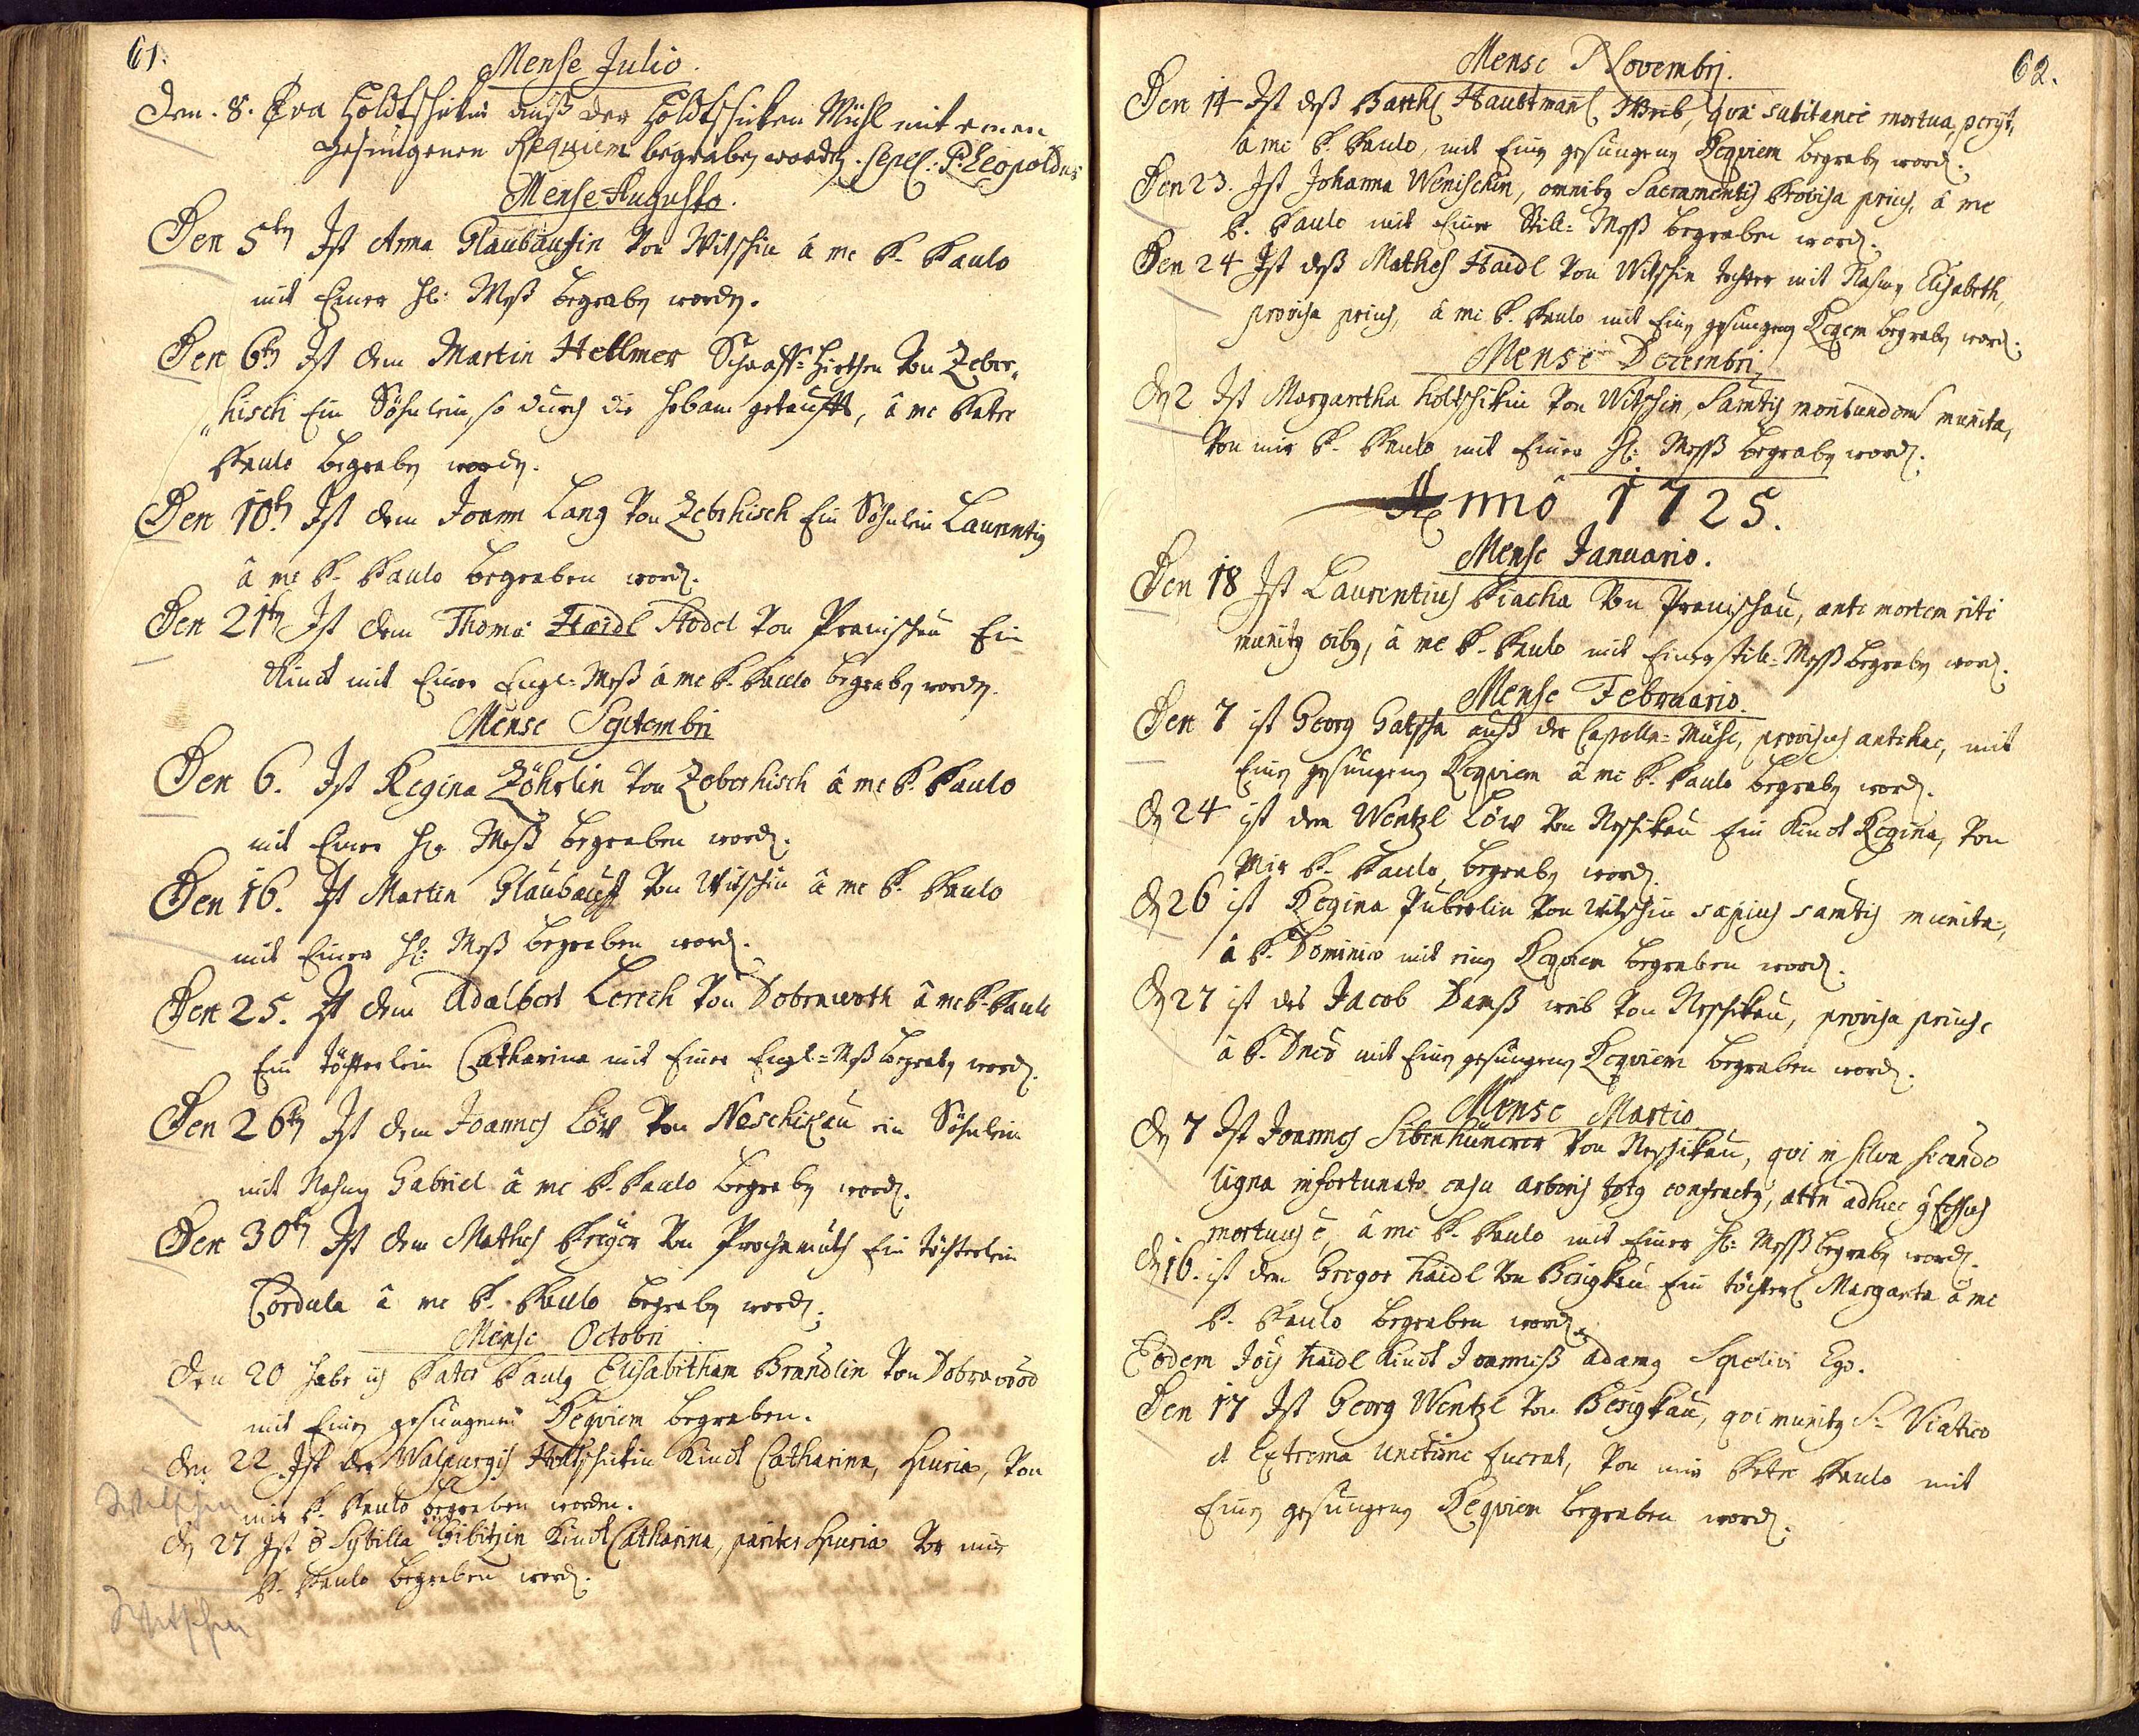 61.
Mense Julio.
Den. 8. Eva Holdtschikin auß der Holdtschicken Mühl mit einen
gesungenen Requiem begraben worden. sepel: P. Leopoldus
Mense Augusto.
Den 5ten Ist Anna Glaubaufin Von Witschin â me P. Paulo
mit Einer Hl: Meß begraben worden.
Den 6ten Ist dem Martin Hellmer Schaaff-Hirthen Von Zeber„
„hisch Ein Söhnlein, so durch die Hebam getaufft, â me Patre
Paulo begraben worden.
Den 10ten Ist dem Joann Lang Von Zebrhisch Ein Söhnlein Laurentius
â me P. Paulo begraben word.
Den 21ten Ist dem Thoma Haidl Hodel Von Pranischau Ein
Kindt mit Einer Engl-Meß â me P. Paulo begraben worden.
Mense Septembri
Den 6. Ist Regina Zöhrlin Von Zeberhisch â me P. Paulo
mit Einer Hl: Meß begraben word.
Den 16. Ist Martin Glaubauff Von Witschin â me P. Paulo
mit Einer Hl: Meß begraben word.
Den 25. Ist dem Adalbert Lerech Von Dobrawoth â me P. Paulo
Ein töchterlein Catharina mit Einer Engl-Meß begraben word.
Den 26ten Ist dem Joannes Löw Von Neschikau ein Söhnlein
mit Nahmen Gabriel â me P. Paulo begraben word.
Den 30ten Ist dem Mathes Kreyer Von Prochamuth Ein töchterlein
Cordula â me P. Paulo begraben word.
Mense Octobri
Den 20 habe ich Pater Paulus Elisabetham Brandlin Von Dobrawod
mit Einem gesungenen Requiem begraben.
Den 22 Ist der Walpurgis Holtschikin Kindt Catharina, spuria, Von
Witschin mir P. Paulo begraben worden.
Den 27 Ist der Sybilla Gibitzin Kindt Catharina, pariter spuria Von mir
P. Paulo begraben word.
Witschin
62.
Mense Novembri.
Den 14 Ist deß Barthl Haubtmannl Weib, quae subitanee mortua perijt,
â me P. Paulo, mit Einem gesungenen Requiem begraben word.
Den 23. Ist Johanna Wenischin, omnibus Sacramentis Provisa prius, â me
P. Paulo mit Einer Still-Meß begraben word.
Den 24 Ist deß Mathes Haidl Von Witschin tochter mit Nahmen Elisabeth,
provisa prius, â me P. Paulo mit Einem gesungenen Requiem begraben word.
Mense Decembri
Den 2 Ist Margaretha Holtschikin Von Witschin, Samtis moribundorum munita,
Von mir P. Paulo mit Einer Hl: Meß begraben word.
Anno 1725.
Mense Januario.
Den 18 Ist Laurentius Piacha Von Pranischau, ante mortem rite
munitus oibus, â me P. Paulo mit Einer still-Meß begraben word.
Mense Februario.
Den 7 ist Georg Gatscha auß der Capelln-Mühl, provisus antehac, mit
Einem gesungenen Requiem â me P. Paulo begraben word.
Den 24 ist dem Wentzl Löw Von Neschikau Ein Kindt Regina, Von
Mir P. Paulo begraben word.
Den 26 ist Regina Puberlin Von Witschin saepius samtis munita,
â P. Dominico mit einem Requiem begraben word.
Den 27 ist des Jacob Damß weib Von Neschikau, provisa prius,
â P. Dnco mit Einem gesungenen Requiem begraben word.
Mense Martio
Den 7 Ist Joannes Sibenhünerer Von Neschikau, qui in silva secando
ligna infortunato casu arboris totus confractus, attn adhuc confessus
mortuus ē, â me P. Paulo mit Einer Hl: Meß begraben word.
Den 16. ist dem Gregor Haidl Von Bergkau Ein töchterl Margareta â me
P. Paulo begraben word.
Eodem Jois Haidl Kindt Joanniß adamus Sepelivi Ego.
Den 17 Ist Georg Wentzl Von Bergkau, qui munitus S. Viatico
et Extrema Unctione fuerat, Von mir Patre Paulo mit
Einem gesungenen Requiem begraben word.